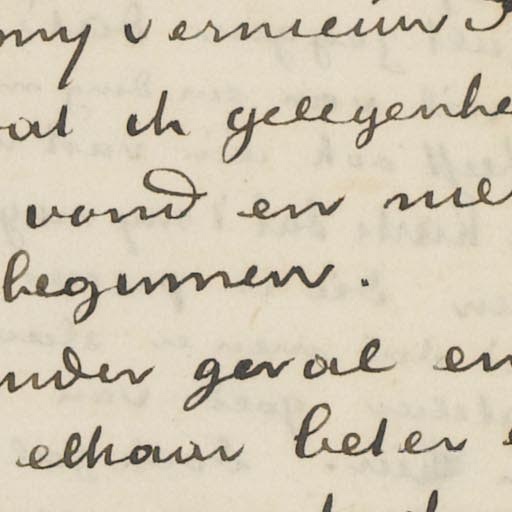 my vernieuw
dat ik gelegenhe
vond en me
beginnen.
ander geval en
elkaar beter